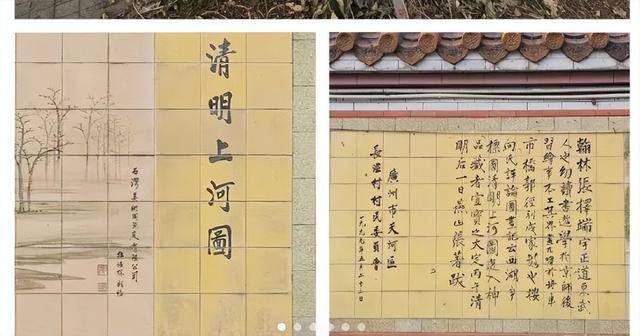 清明上河圖
石灣美術陶瓷廠有限公司
翰林張擇端字正道東武
人也幼讀書遊學於京師後
習繪事本工其界畫尤嗜於舟車
市橋郭徑別成家數也按
向氏評論圖畫記云西湖爭
標圖清明上河圖選入神
品藏者宜寶之大定丙午清
明后一日燕山張著跋
廣州市天河區
長湴村村民委員會
一九九九年五月